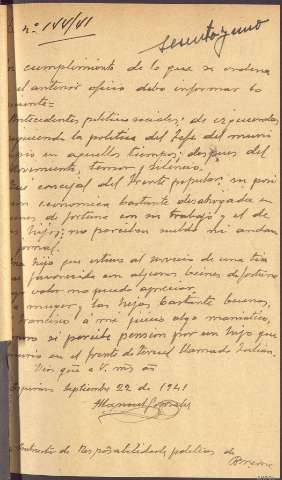 nº 144/41
Sesenta y uno
cumplimiento de lo que se ordena
el anterior oficio debo informar lo
Antecedentes politico sociales; de izquierdas,
siguiendo la politica del Jefe del muni
cipio en aquellos tiempos; despues del
movimiento, temor y silencio.
concejal del Frente popular, su posi
economica bastante desahogada en
de fortuna con su trabajo y el de
hijos; no perciben
formal.
hijo que estuvo al servicio de una tia
favorecido con algunos bienes de fortuna
valor no puedo apreciar.
mujer y las hijas bastante buenas,
Francisco á mi juicio algo maniático,
si percibe pension por un hijo que
murio en el frente de Teruel llamado Julian.
Dios gue a V. ms as
Septiembre 22 de 1941
Manuel Gonzalez
de Responsabilidades politicas de